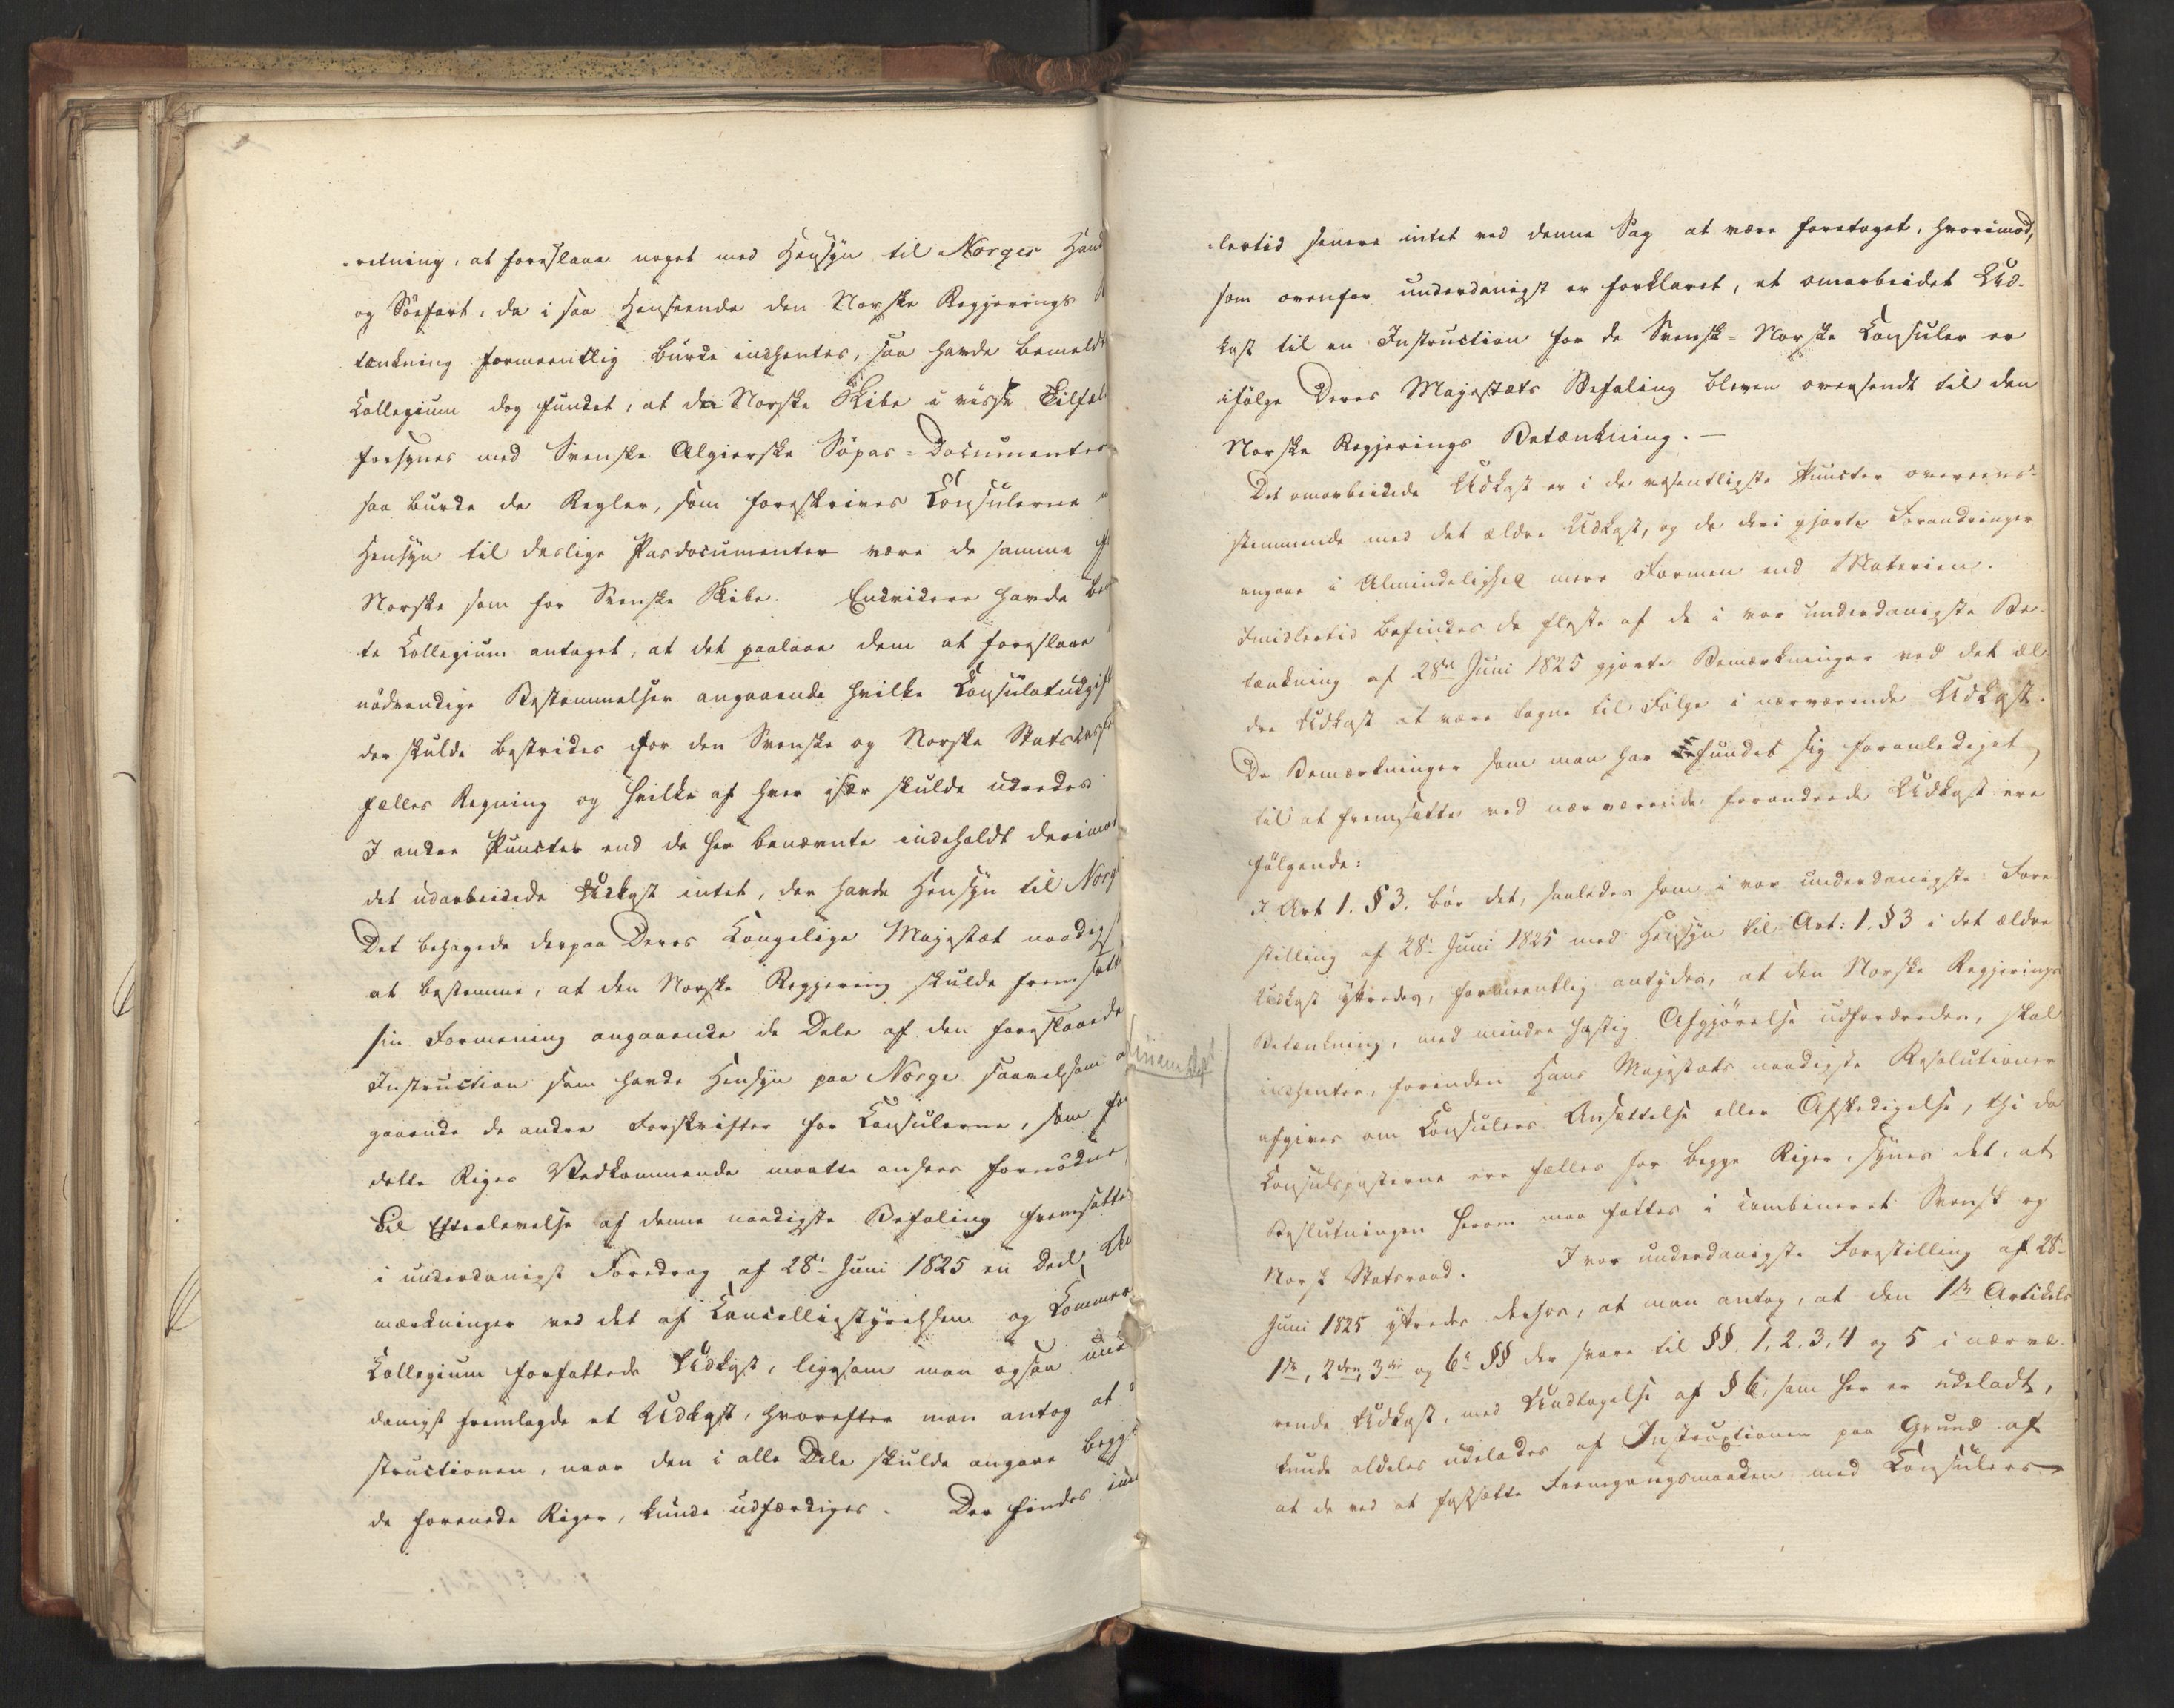 retning, at foreslaae noget med Hensyn til Norges Hand
og Söefart, da i saa Henseende den Norske Regjerings
tænkning formeentlig burde indhentes, saa havde bemeldt
Collegium dog fundet, at da Norske Skibe i visse Tilfæl
forsynes med Svenske Algierske Söpas-Documenter
saa burde de Regler, som foreskrives Consulerne
Hensyn til deslige Pasdocumenter være de samme
Norske som for Svenske Skibe. Endvidere havde be
te Collegium antaget, at det paalaae dem at foreslaae
nödvendige Bestemmelser angaaende hvilke Consulatudgif
der skulde bestrides for den Svenske og Norske Statskasses
fælles Regning og hvilke af hver især skulde udredes
I andre Puncter end de her benævnte indeholdt derimod
det udarbeidede Udkast intet, der havde Hensyn til Norg
Det behagede derpaa Deres Kongelige Majestæt naadigs
at bestemme, at den Norske Regjering skulde fremsætt
sin Formening angaaende de Dele af den foreslaaede
Instruction som havde Hensyn paa Norge saavelsom
gaaende de andre Forskrifter for Consulerne, som for
dette Riges Vedkommende maatte ansees fornödne
Til Efterlevelse af denne naadigste Befaling fremsatte
i underdanigst Foredrag af 28de Juni 1825 en Deel
mærkninger ved det af Cancelliestyrelsen og Commerce
Collegium forfattede Udkast, ligesom man ogsaa und
danigst fremlagde et Udkast, hvorefter man antog at
structionen, naar den i alle Dele skulde angaae begge
de forenede Riger, kunde udfærdiges. Der findes im
lertid senere intet ved denne Sag at være foretaget, hvorimod,
som ovenfor underdanigst er forklaret, et omarbeidet Ud-
kast til en Instruction for de Svensk-Norske Consuler er
ifölge Deres Majestæts Befaling bleven oversendt til den
Norske Regjerings Betænkning. —
Det omarbeidede Udkast er i de væsentligste Puncter overeens-
stemmende med det ældre Udkast, og de deri gjorte Forandringer
angaae i Almindelighed mere Formen end Materien.
Imidlertid befindes de fleste af de i vor underdanigste Be-
tænkning af 28de Juni 1825 gjorte Bemærkninger ved det æl-
dre Udkast at være tagne til Fölge i nærværende Udkast.
De Bemærkninger som man har fundet sig foranlediget
til at fremsætte ved nærværende forandrede Udkast ere
fölgende:
I Art 1. § 3. bör det, saaledes som i vor underdanigste Fore
stilling af 28de Juni 1825 med Hensyn til Art: 1. § 3 i det ældre
Udkast yttredes, formeentlig antydes, at den Norske Regjerings
Betænkning, med mindre hastig Afgjörelse udfordredes, skal
indhentes, forinden Hans Majestæts naadigste Resolutioner
afgives om Consulers Ansættelse eller Afskedigelse, thi da
Consulsposterne ere fælles for begge Riger, synes det, at
Beslutningen herom maa fattes i combineret Svensk og
Norsk Statsraad. I vor underdanigste Forestilling af 28de
Juni 1825 yttredes derhos, at man antog, at den 1ste Artikels
1ste, 2den, 3die og 6te §§ der svare til §§. 1, 2, 3, 4 og 5 i nærvæ-
rende Udkast, med Undtagelse af § 6, som her er udeladt,
kunde aldeles udelades af Instructionen paa Grund af
at de ved at fastsætte Fremgangsmaaden med Consulers